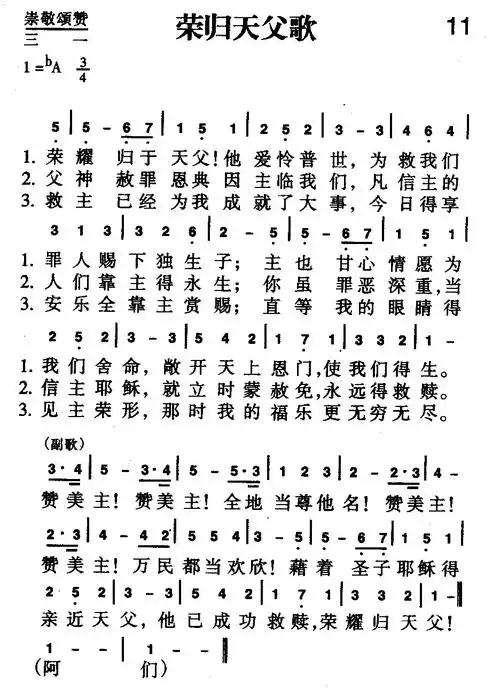 崇敬颂赞
三 一
荣归天父歌 11
1=ᵇA 3/4
5 | 5 - 6 7 | 1 5 1 | 2 5 2 | 3 - 3 | 4 6 4 |
1. 荣 耀 归于 天父!他 爱怜普世,为救我们
2. 父神 赦罪 恩典 因 主临我们,凡信主的
3. 救主 已经 为我 成 就了大事,今日得享
3 1 3 | 3 2 6 | 2 - 5 | 5 - 6 7 | 1 5 1 |
1. 罪人赐下独生子; 主也 甘心 情愿为
2. 人们靠主得永生; 你虽 罪恶 深重,当
3. 安乐全靠主赏赐; 直等 我的 眼睛得
2 5 2 | 3 - 3 | 5 4 2 | 1 7 1 | 3 3 2 | 1 - |
1. 我们舍命,敞开天上恩门,使我们得生。
2. 信主耶稣,就立时蒙赦免,永远得救赎。
3. 见主荣形,那时我的福乐更无穷无尽。
(副歌)
3·4 | 5 - 3·4 | 5 - 5·3 | 1 2 3 | 2 - 2·3 | 4 -
赞美主! 赞美主! 全地 当尊他名! 赞美主!
2·3 | 4 - 4 2 | 5 5 4 | 3 - 5 | 5 - 6 7 | 1 5 1 |
赞美主! 万民都当欢欣! 藉着 圣子耶稣得
2 5 2 | 3 - 3 | 5 4 2 | 1 7 1 | 3 3 2 | 1 - ‖
亲近天父,他已成功救赎,荣耀归天父!
1 - - | 1 - - ‖
(阿 们)